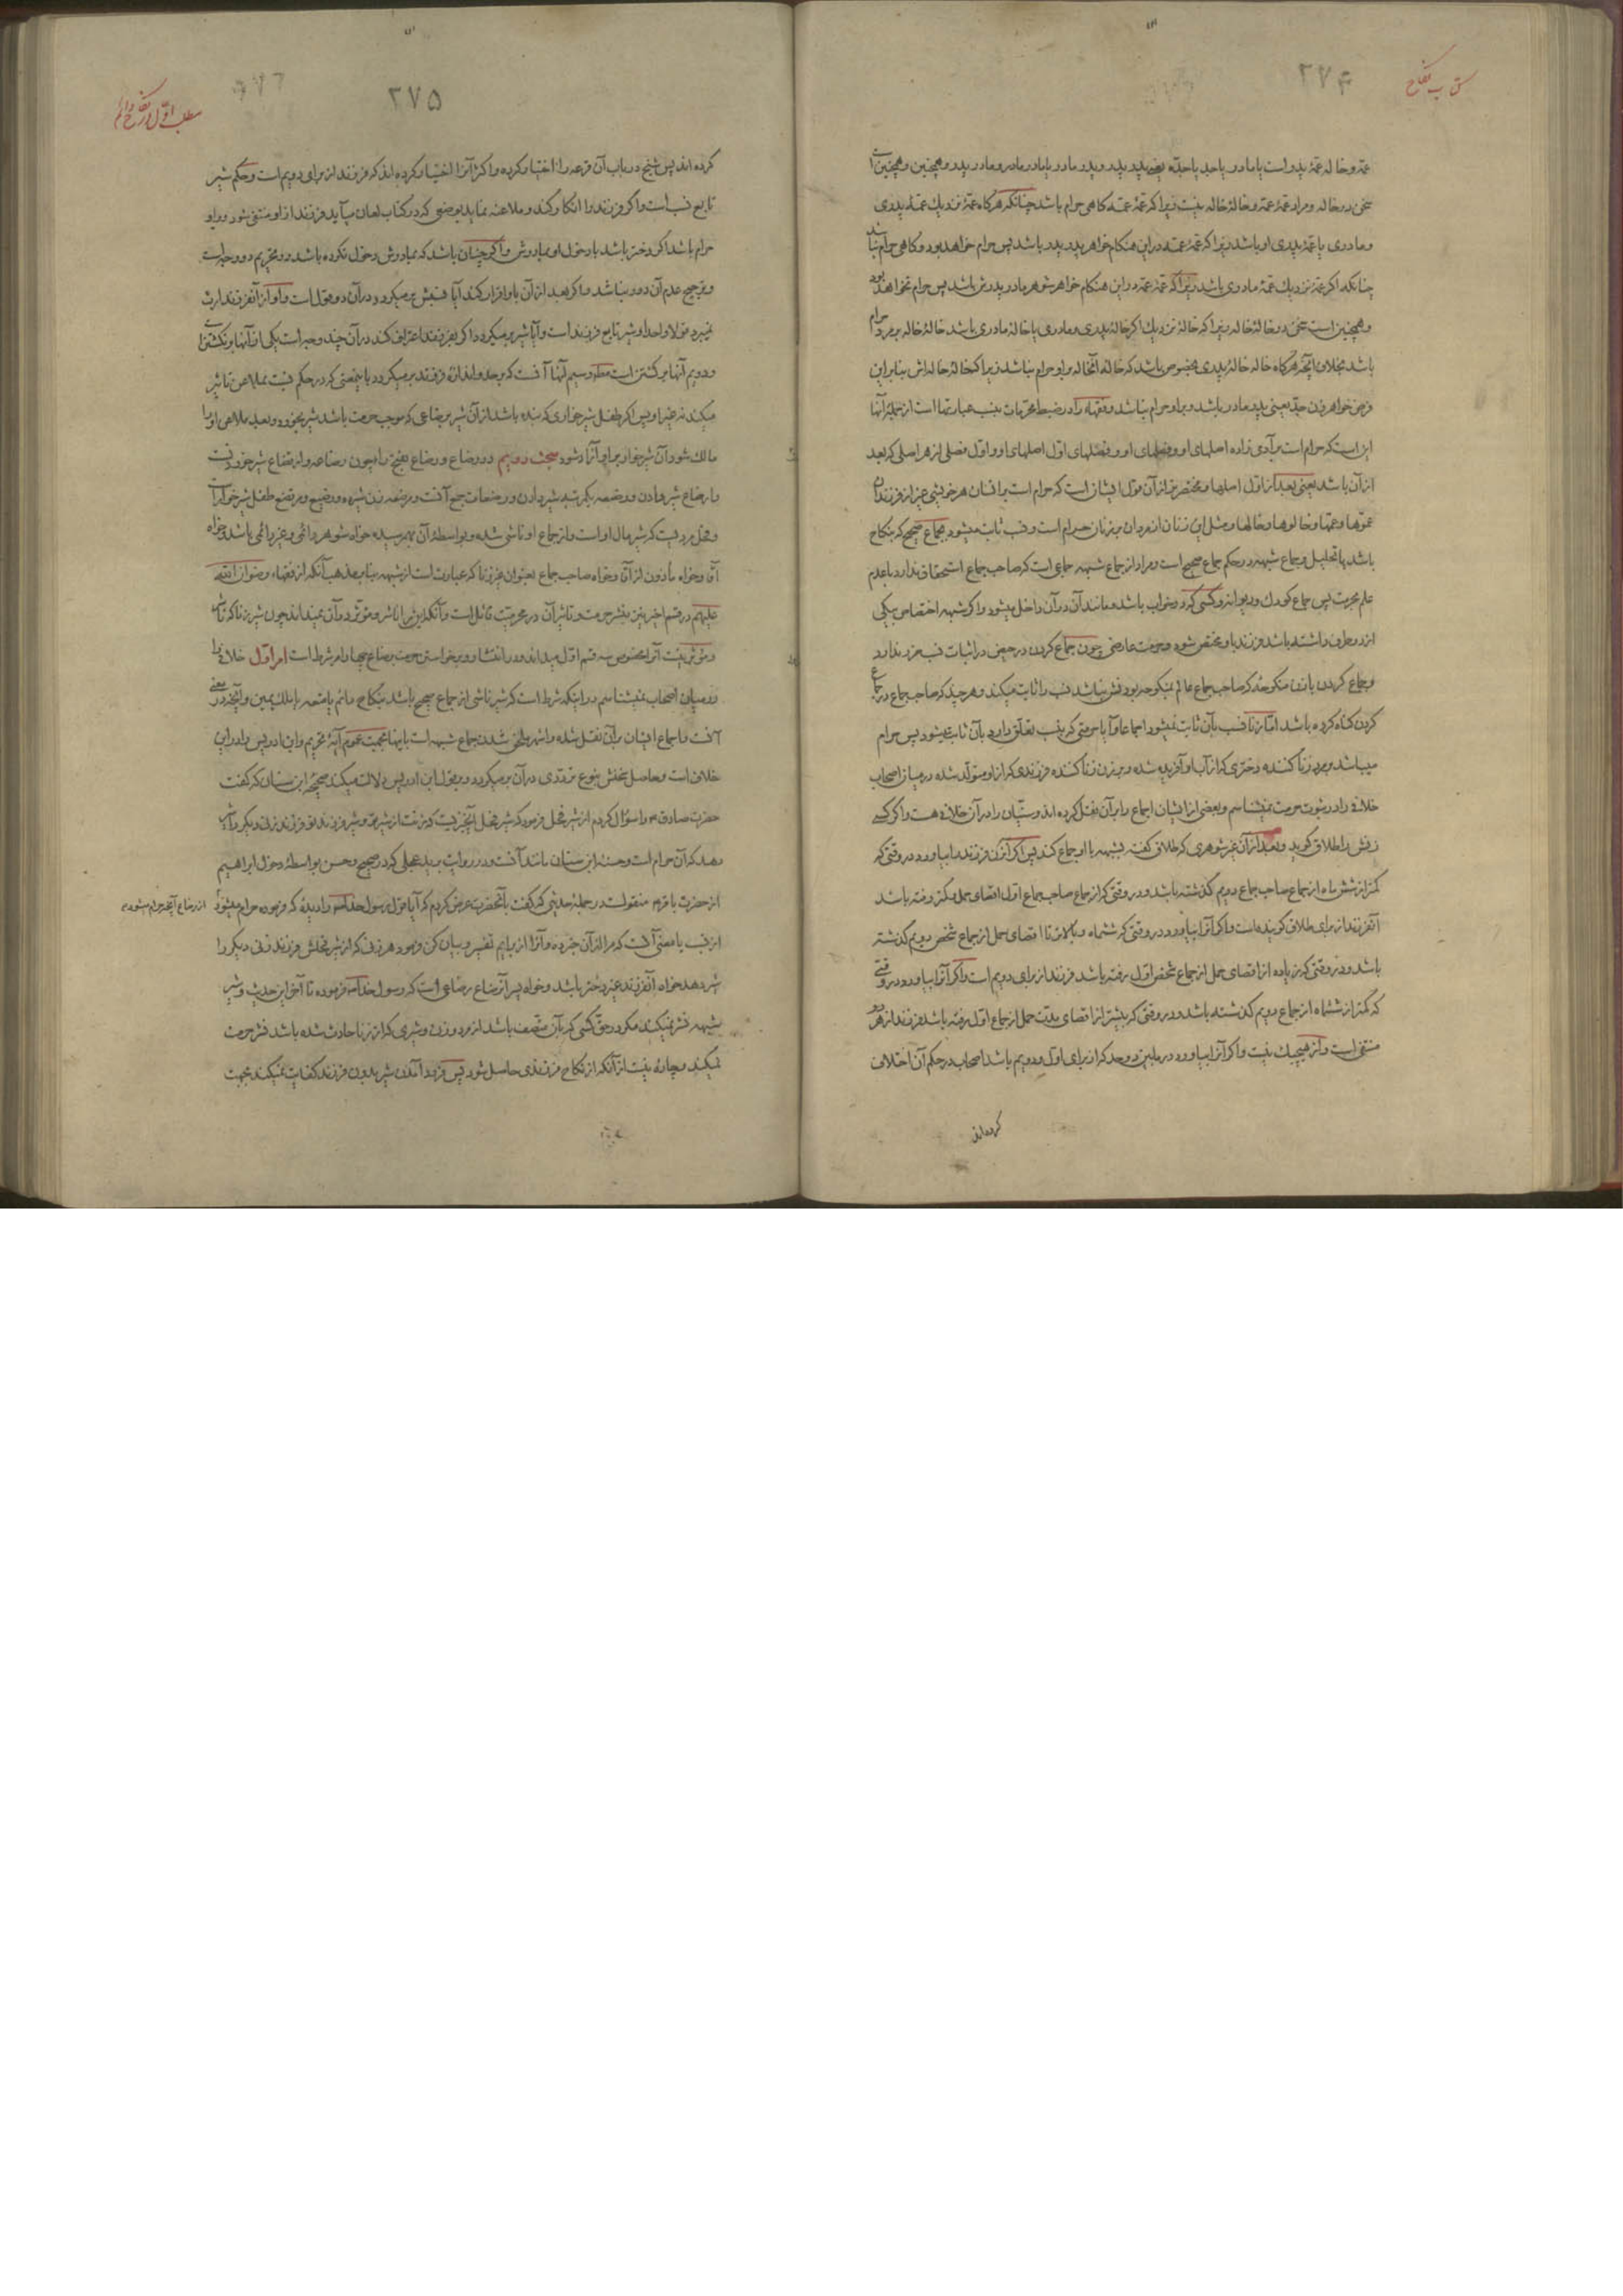 کتاب نکاح
۲۷۴
عمّه و خاله عمّهٔ پدر است یا مادر یا جد یا جدّه یعنی پدر پدر و پدر مادر یا مادر مادر و مادر پدر و همچنین و همچنین است
سخن در خاله و مراد عمّهٔ عمّه و خالهٔ خاله نیست زیرا که عمّهٔ عمّه گاهی حرام باشد چنانکه هرگاه عمّهٔ نزدیک عمّه پدری
و مادری یا عمّهٔ پدری او باشد زیرا که عمّهٔ عمّه در این هنگام خواهر پدر پدر باشد پس حرام خواهد بود و گاهی حرام نباشد
چنانکه اگر عمّهٔ نزدیک عمّهٔ مادری باشد زیرا که عمّهٔ عمّه در این هنگام خواهر شوهر مادر پدرش باشد پس حرام نخواهد بود
و همچنین است سخن در خالهٔ خاله زیرا که خالهٔ نزدیک اگر خالهٔ پدری و مادری یا خالهٔ مادری باشد خالهٔ خاله بر مرد حرام
باشد بخلاف آنکه هرگاه خاله خالهٔ پدری مخصوص باشد که خالهٔ آنخاله بر او حرام نباشد زیرا که خالهٔ خاله‌اش بنابراین
فرض خواهر زن جدّ یعنی پدر مادر باشد و بر او حرام نباشد و فقهاء را در ضبط محرّمات بنسب عبارتها است از جملهٔ آنها
این است که حرام است بر آدمی زاده اصلهای او و فصلهای او و فصلهای اوّل اصلهای او و اوّل فصلی از هر اصلی که بعد
از آن باشد یعنی بعد از اوّل اصلها و مختصرتر از آن قول ایشان است که حرام است بر انسان هر خویشی غیر از فرزندان
عموها و عمّها و خالوها و خالها و مثل این زنان از مردان بر زنان حرام است و نسب ثابت میشود بجماع صحیح که بنکاح
باشد یا تحلیل و جماع شبهه در حکم جماع صحیح است و مراد از جماع شبهه جماعی است که صاحب جماع استحقاق ندارد با عدم
علم بحرمت پس جماع کودک و دیوانه و کسی که در خواب باشد و مانند آن در آن داخل میشود و اگر شبهه اختصاص بیکی
از دو طرف داشته باشد فرزند باو مختص شود و حرمت عارضی چون جماع کردن در حیض در اثبات نسب ضرر ندارد
و جماع کردن با زن منکوحه که صاحب جماع عالم بمنکوحه بودنش نباشد نسب را ثابت میکند و هر چند که صاحب جماع در جماع
کردن گناه کرده باشد امّا زنا نسب بآن ثابت نمیشود اجماعا و آیا حرمتی که بنسب تعلّق دارد بآن ثابت میشود پس حرام
میباشد بر مرد زنا کننده دختری که از آب او آفریده شده و بر زن زنا کننده فرزندی که از او متولّد شده در میان اصحاب
خلافی را در ثبوت حرمت نمیشناسم و بعضی از ایشان اجماع را بر آن نقل کرده اند و سنّیان را در آن خلافی هست و اگر کسی
زنش را طلاق گوید و بعد از آن غیر شوهری که طلاق گفته بشبهه با او جماع کند پس اگر آنزن فرزند را بیاورد در وقتی که
کمتر از شش ماه از جماع صاحب جماع دویم گذشته باشد و در وقتی که از جماع صاحب جماع اوّل اقصای حمل نگذشته باشد
آنفرزند از برای طلاق گوینده است و اگر آنرا بیاورد در وقتی که ششماه و بالاتر تا اقصای حمل از جماع شخص دویم گذشته
باشد و در وقتی که زیاده از اقصای حمل از جماع شخص اوّل رفته باشد فرزند از برای دویم است و اگر آنرا بیاورد در وقتی
که کمتر از ششماه از جماع دویم گذشته باشد و در وقتی که بیشتر از اقصای مدّت حمل از جماع اوّل رفته باشد فرزند از هر دو
منتفی است و از هیچیک نیست و اگر آنرا بیاورد در مابین دو حد که از برای اوّل و دویم باشد اصحاب در حکم آن اختلاف
کرده‌اند
۲۷۵
کرده اند پس شیخ در باب آن قرعه را اختیار کرده و اکثر آنرا اختیار کرده اند که فرزند از برای دویم است و حکم شیر
تابع نسب است و اگر فرزند را انکار کند و ملاعنه نماید بوضعی که در کتاب لعان میآید فرزند از او منتفی شود و بر او
حرام باشد اگر دختر باشد با دخول او بمادرش و اگر چنان باشد که بمادرش دخول نکرده باشد در تحریم دو وجه است
و ترجیح عدم آن دور نباشد و اگر بعد از آن باو اقرار کند آیا نسبش برمیگردد در آن دو قول است و او از آنفرزند ارث
نمیبرد قولا واحدا و شیر تابع فرزند است و آیا شیر برمیگردد اگر بفرزند اعتراف کند در آن چند وجه است یکی از آنها برنگشتن است
و دویم آنها برگشتن است مطلقا و سیم آنها آنست که بر حد و اندازهٔ فرزند برمیگردد باینمعنی که در حکم نسبت بملاعن تاثیر
میکند نه غیر او پس اگر طفل شیرخواری که بنده باشد از آن شیر برضاعی که موجب حرمت باشد شیر بخورد و بعد ملاعن او را
مالک شود آن شیرخوار بر او آزاد شود مبحث دویم در رضاع و رضاع بفتح را چون رضاعه و ارتضاع شیر خوردنست
و ارضاع شیر دادن و رضعه یکمرتبه شیر دادن و رضعات جمع آنست و مرضعه زن شیرده و رضیع و مرتضع طفل شیر خواره است
و فحل مردیست که شیر مال او است و از جماع او ناشی شده و بواسطهٔ آن بهمرسیده خواه شوهر دائمی و غیر دائمی باشد و خواه
آقا و خواه ماذون از آقا و خواه صاحب جماع بعنوان غیر زنا که عبارت است از شبهه بنا بمذهب آنکه از فقهاء رضوان الله
علیهم در قسم اخیر نیز بنشر حرمت و تاثیر آن در محرمیّت قائل است و آنکه این شیر را ناشر و مؤثّر در آن نمیداند چون شیر زنا که ناشر
و مؤثر نیست آنرا مخصوص سه قسم اوّل میداند و در انتشار و برخواستن حرمت رضاع چهار امر شرط است امر اوّل خلافی را
در میان اصحاب نمیشناسم در اینکه شرط است که شیر ناشی از جماع صحیح باشد بنکاح دائم یا متعه یا بملک یمین و آنچه در معنی
آنست و اجماع ایشان بر آن نقل شده و اشهر ملحق شدن جماع شبهه است باینها بجهت عموم آیهٔ تحریم و ابن ادریس را در این
خلاف است و حاصل سخنش بنوع تردّدی در آن برمیگردد و بر قول ابن ادریس دلالت میکند صحیحهٔ ابن سنان که گفت
حضرت صادق ع را سؤال کردم از شیر فحل فرمود که شیر فحل آنچیزیست که زنت از شیر تو و شیر فرزند تو فرزند زنی دیگر را شیر
دهد که آن حرام است و حسنهٔ ابن سنان مانند آنست و در روایت برید عجلی که در صحیح و حسن بواسطهٔ دخول ابراهیم
از حضرت باقر ع منقولست در جملهٔ حدیثی که گفت بآنحضرت عرض کردم که آیا قول رسول خدا ص را دیدهٔ که فرموده حرام میشود
از رضاع آنچه حرام میشود
از نسب یا معنی آنست که مرا از آن خبر ده و آنرا از برایم تفسیر و بیان کن فرمود هر زنی که از شیر فحلش فرزند زنی دیگر را
شیر دهد خواه آنفرزند غیر دختر باشد و خواه پسر آن رضاع رضاعی است که رسول خدا ص فرموده تا آخر این حدیث و شیر
شبهه نشر نمیکند مگر در حق کسی که بآن متّصف باشد از مرد و زن و شیری که از زنا حادث شده باشد نشر حرمت
نمیکند و چاره نیست از آنکه از نکاح فرزندی حاصل شود پس فرود آمدن شیر بدون فرزند کفایت نمیکند بجهت